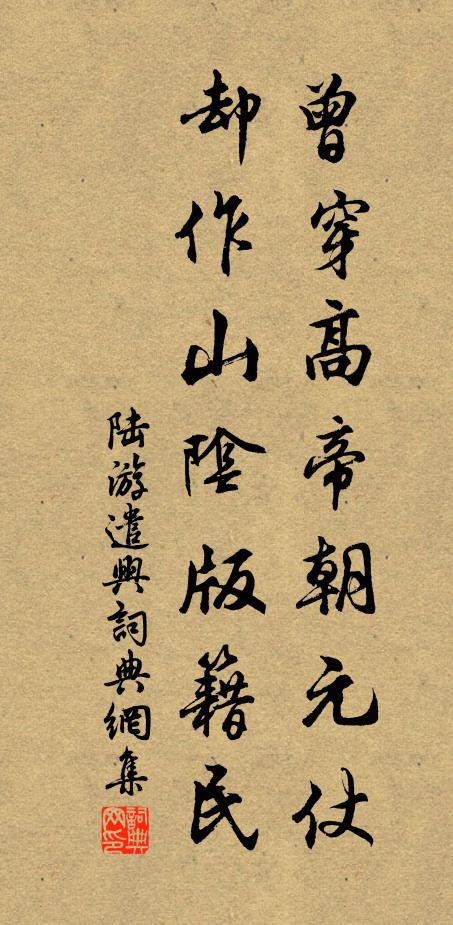 曾穿高帝朝元仗
却作山陰版籍民
陆游遣興詞典網集
詞典網印